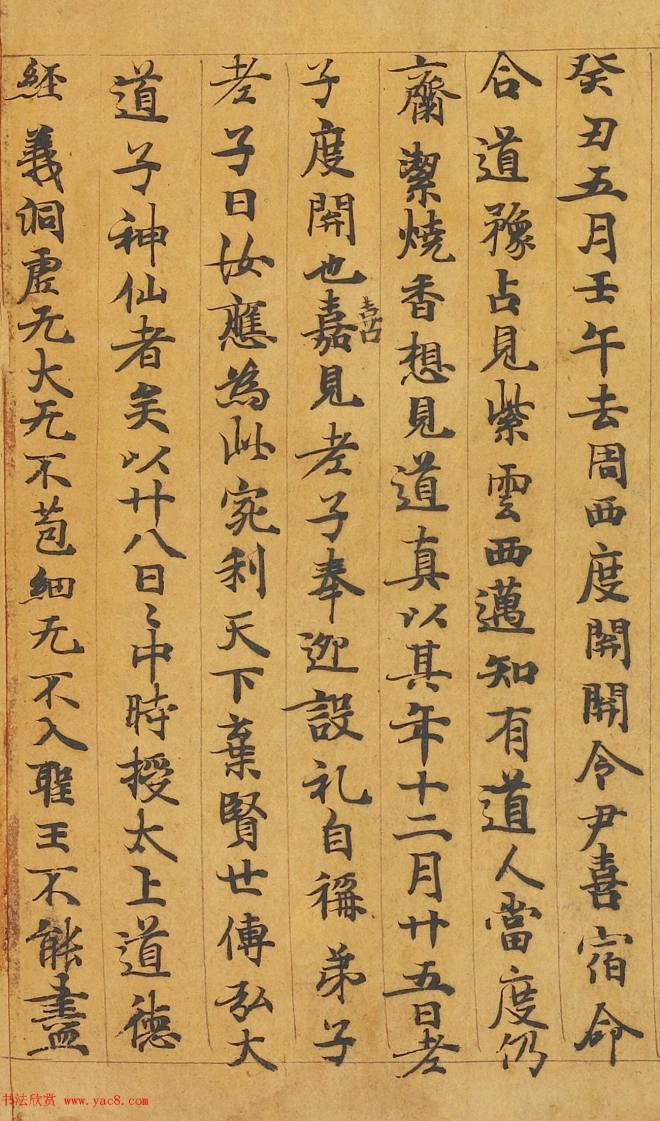 癸丑五月壬午去周西度關關令尹喜宿命
合道豫占見紫雲西邁知有道人當度仍
齋潔燒香想見道真以其年十二月廿五日老
子度開也嘉見老子奉迎設礼自稱弟子
喜占
老子曰汝應為此宛利天下棄賢世傳弘大
道子神仙者矣以廿八日〻中時授太上道德
經義洞虛无大无不苞細无不入聖王不能盡
书法欣赏 www.yac8.com